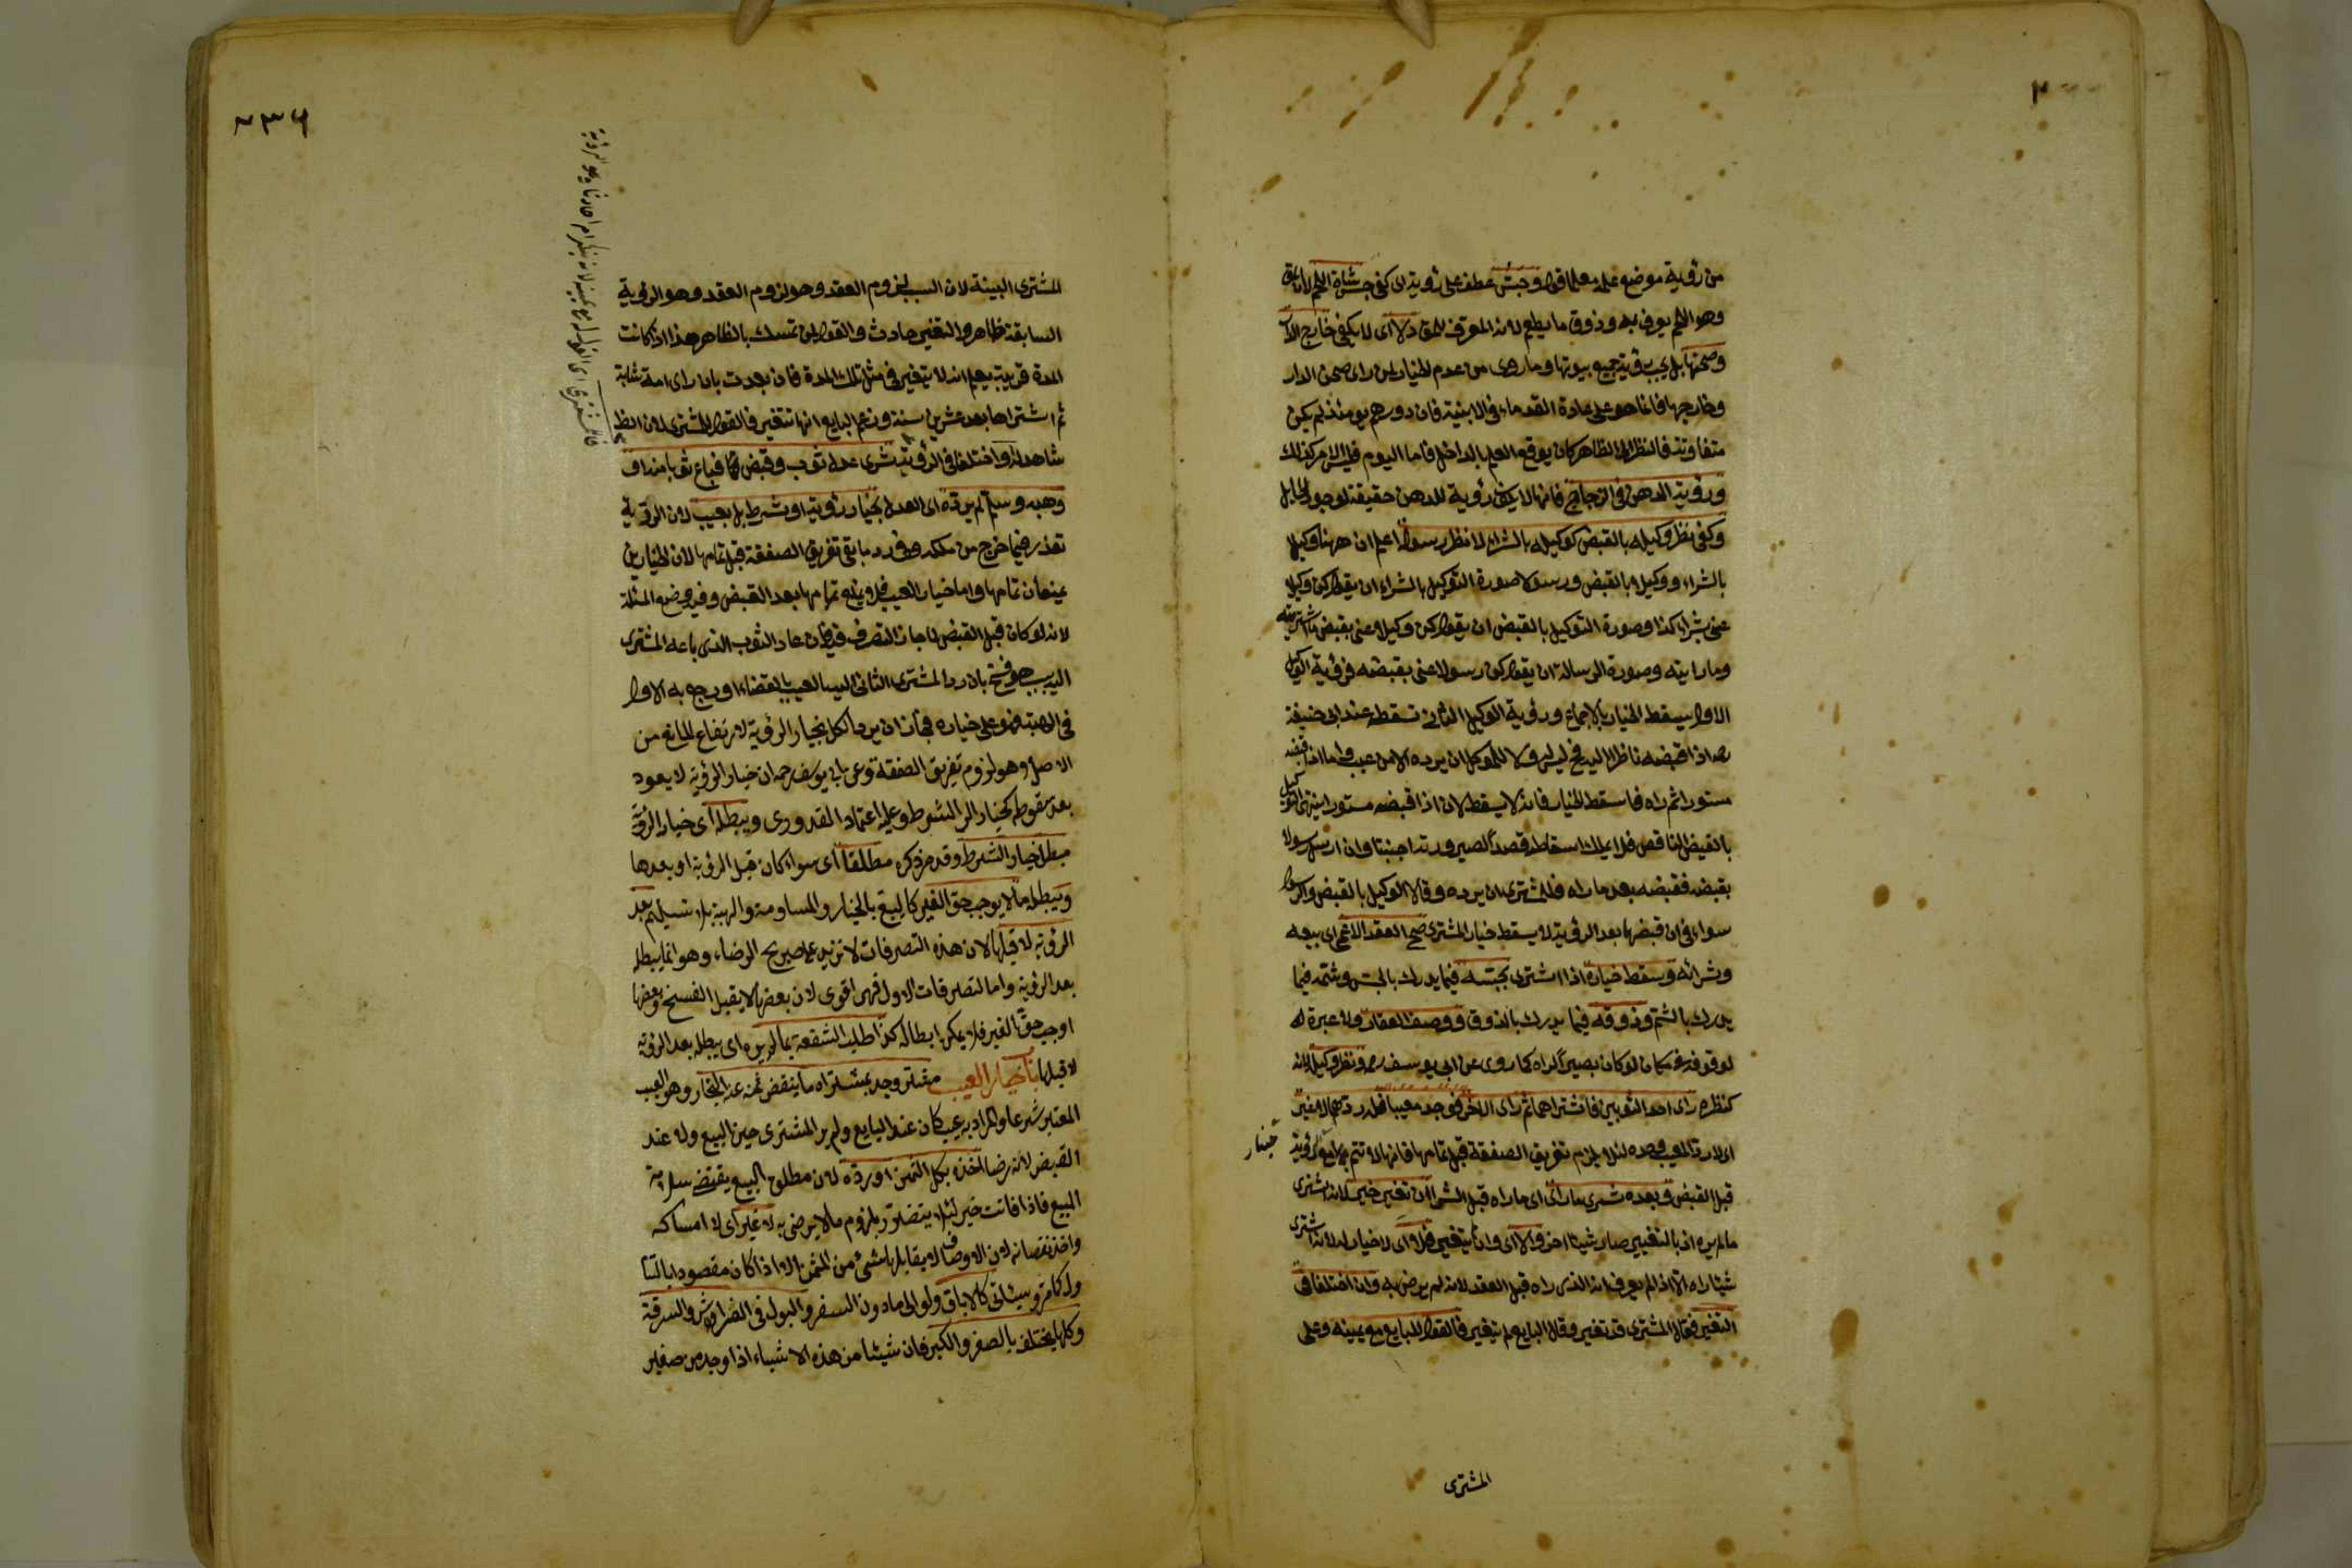 من رؤية موضع علم معلما قوله وجس عطف على رؤيته اى كفى جس شاة اللحم لانه
وهو اللحم يعرف به وذوق ما يطعم لانه المعرف للمق لا اى لا يكفى خارج الدار
وصحنها بل يجب رؤية جميع بيوتها وما روى من عدم الخيار لمن راى صحن الدار
وخارجها فانما هو على عادة القدماء فى الابنية فان دورهم يومئذ لم يكن
متفاوتة فالنظر الى الظاهر كان يوقع العلم بالداخل فاما اليوم فليس الامر كذلك
ورؤية الدهن فى الزجاج فانها لا يكون رؤية للدهن حقيقة لوجود الحايل
وكفى نظر وكيله بالقبض كوكيله بالشراء لا نظر رسوله اعلم ان ههنا وكيلا
بالشراء ووكيلا بالقبض ورسولا صورة التوكيل بالشراء ان يقول كن وكيلا
عنى بشراء كذا وصورة التوكيل بالقبض ان يقول كن وكيلا عنى بقبض ما اشتريته
وما رايته وصورة الرسالة ان يقول كن رسولا عنى بقبضه فرؤية الوكيل
الاول يسقط الخيار بالاجماع ورؤية الوكيل الثانى تسقط عند ابى حنيفة
رحه اذا قبضه ناظرا اليه فح ليس له ولا للموكل ان يرده الا من عيب واما اذا قبضه
مستورا ثم راه فاسقط الخيار فانه لا يسقط لانه اذا قبضه مستورا ينتهى التوكيل
بالقبض الناقص فلا يملك اسقاطه قصدا لصيرورته اجنبيا وان ارسل رسولا
بقبضه فقبضه بعد ما راه فللمشترى ان يرده وقالا الوكيل بالقبض والرسول
سواء فى ان قبضها بعد الرؤية لا يسقط خيار المشترى صح العقد الاعمى اى بيعه
وشرائه وسقط خياره اذا اشترى بجسه فيما يدرك بالجس وشمه فيما
يدرك بالشم وذوقه فيما يدرك بالذوق ووصف العقار ولا عبرة له
لوقوفه فى مكان لو كان بصيرا لراه كما روى عن ابى يوسف رحه ونظر وكيله
كنظره راى احد الثوبين فاشتراهما ثم راى الاخر فوجد معيبا فله ردهما لا غير
اى لا رد المعيب وحده لئلا يلزم تفريق الصفقة قبل تمامها فانها لا تتم مع خيار الرؤية
خيار
قبل القبض وبعده شرى ما راى اى ما راه قبل الشراء ان تغير خير لانه اشترى
ما لم يره اذ بالتغيير صار شيئا اخر والا اى وان لم يتغير فلا اى لا خيار له لانه اشترى
شيئا راه الا اذا لم يعرف انه الذى راه قبل العقد لانه لم يرض به وان اختلفا فى
التغير فقال المشترى قد تغير وقال البايع لم يتغير فالقول للبايع مع يمينه وعلى
المشترى
٢٣٦
المشترى البينة لان السبب لزوم العقد وهو لزوم العقد وهو الرؤية
السابقة ظاهر والتغير حادث والقول لمن تمسك بالظاهر هذا اذا كانت
المدة قريبة يعلم انه لا يتغير فى مثل تلك المدة فان بعدت بان راى امة شابة
ثم اشتراها بعد عشرين سنة وزعم البايع انها لم تتغير فالقول للمشترى لان الظ
شاهد له او اختلفا فى الرؤية شرى عدل ثوب وقبض فباع ثوبا منه او
وهبه وسلم لم يرده اى العدل بخيار رؤية او شرط بل بعيب لان الرد
تعذر فيما خرج من ملكه وفى رد ما بقى تفريق الصفقة قبل تمامها لان الخيارين
يمنعان تمامها واما خيار العيب فلا يمنع تمامها بعد القبض وفيه وضع المسئلة
لانه لو كان قبل القبض لما جاز التصرف فيه فان عاد الثوب الذى باعه المشترى
اليه بسبب هو فسخ بان رد المشترى الثانى اليه بالعيب بالقضاء او رجع به الاول
فى الهبة فهو على خياره فجاز ان يرد الكل بخيار الرؤية لارتفاع المانع من
الاصل وهو لزوم تفريق الصفقة وعن ابى يوسف رحمه ان خيار الرؤية لا يعود
بعد سقوطه كخيار الشرط وعليه اعتماد القدورى ويبطله اى خيار الرؤية
مبطل خيار الشرط وقد مر ذكره مطلقا اى سواء كان قبل الرؤية او بعدها
ويبطله ما لا يوجب حق الغير كالبيع بالخيار والمساومة والهبة بلا تسليم بعد
الرؤية لا قبلها لان هذه التصرفات لا تزيد على صريح الرضاء وهو انما يبطله
بعد الرؤية واما لتصرفات الاول فهى اقوى لان بعضها لا يقبل الفسخ وبعضها
اوجب حق الغير فلا يمكن ابطاله كذا طلب الشفعة بما لم يره اى يبطله بعد الرؤية
لا قبلها باب خيار العيب مشتر وجد بمشتراه ما ينقص ثمنه عند التجار وهو العيب
المعتبر شرعا والمراد به عيب كان عند البايع ولم ير المشترى حين البيع ولا عند
القبض لانه رضا اخذه بكل الثمن او رده لان مطلق البيع يقتضى سلامة
المبيع فاذا فاتت خير لئلا يتضرر بلزوم ما لا يرضى به لا غير اى لا امساكه
واخذ نقصانه لان الاوصاف لا يقابلها شئ من الثمن الا اذا كان مقصودا بالتنا
ول كما مر وسيئاتى كالاباق ولو الى ما دون السفر والبول فى الفراش والسرقة
وكلها يختلف بالصغر والكبر فان شيئا من هذه الاشياء اذا وجد من صغير